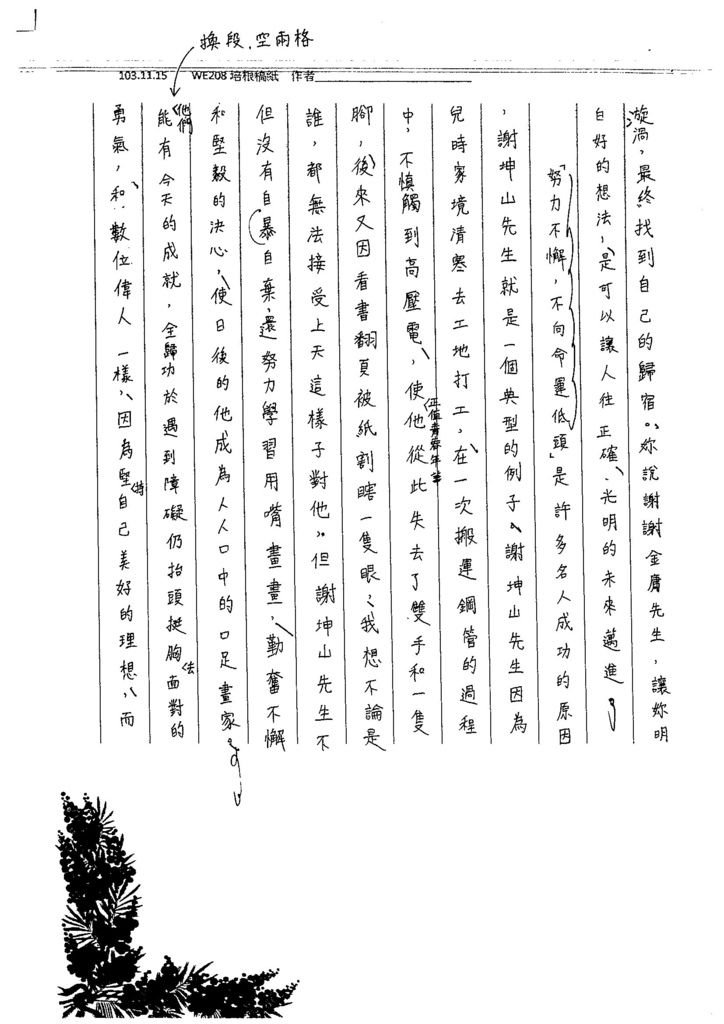 換段.空兩格
103.11.15 WE208 培根稿紙 作者
漩渦，最終找到自己的歸宿。妳說謝謝金庸先生，讓妳明
白好的想法，是可以讓人往正確、光明的未來邁進。
「努力不懈，不向命運低頭」是許多名人成功的原因
，謝坤山先生就是一個典型的例子。謝坤山先生因為
兒時家境清寒去工地打工，在一次搬運鋼管的過程
中，不慎觸到高壓電，使他從此失去了雙手和一隻
正值青春年華
腳，後來又因看書翻頁被紙割瞎一隻眼，我想不論是
誰，都無法接受上天這樣子對他。但謝坤山先生不
但沒有自暴自棄，還努力學習用嘴畫畫，勤奮不懈
和堅毅的決心，使日後的他成為人人口中的口足畫家。
他們
能有今天的成就，全歸功於遇到障礙仍抬頭挺胸面對的
法
勇氣，和數位偉人一樣，因為堅自己美好的理想，而
持